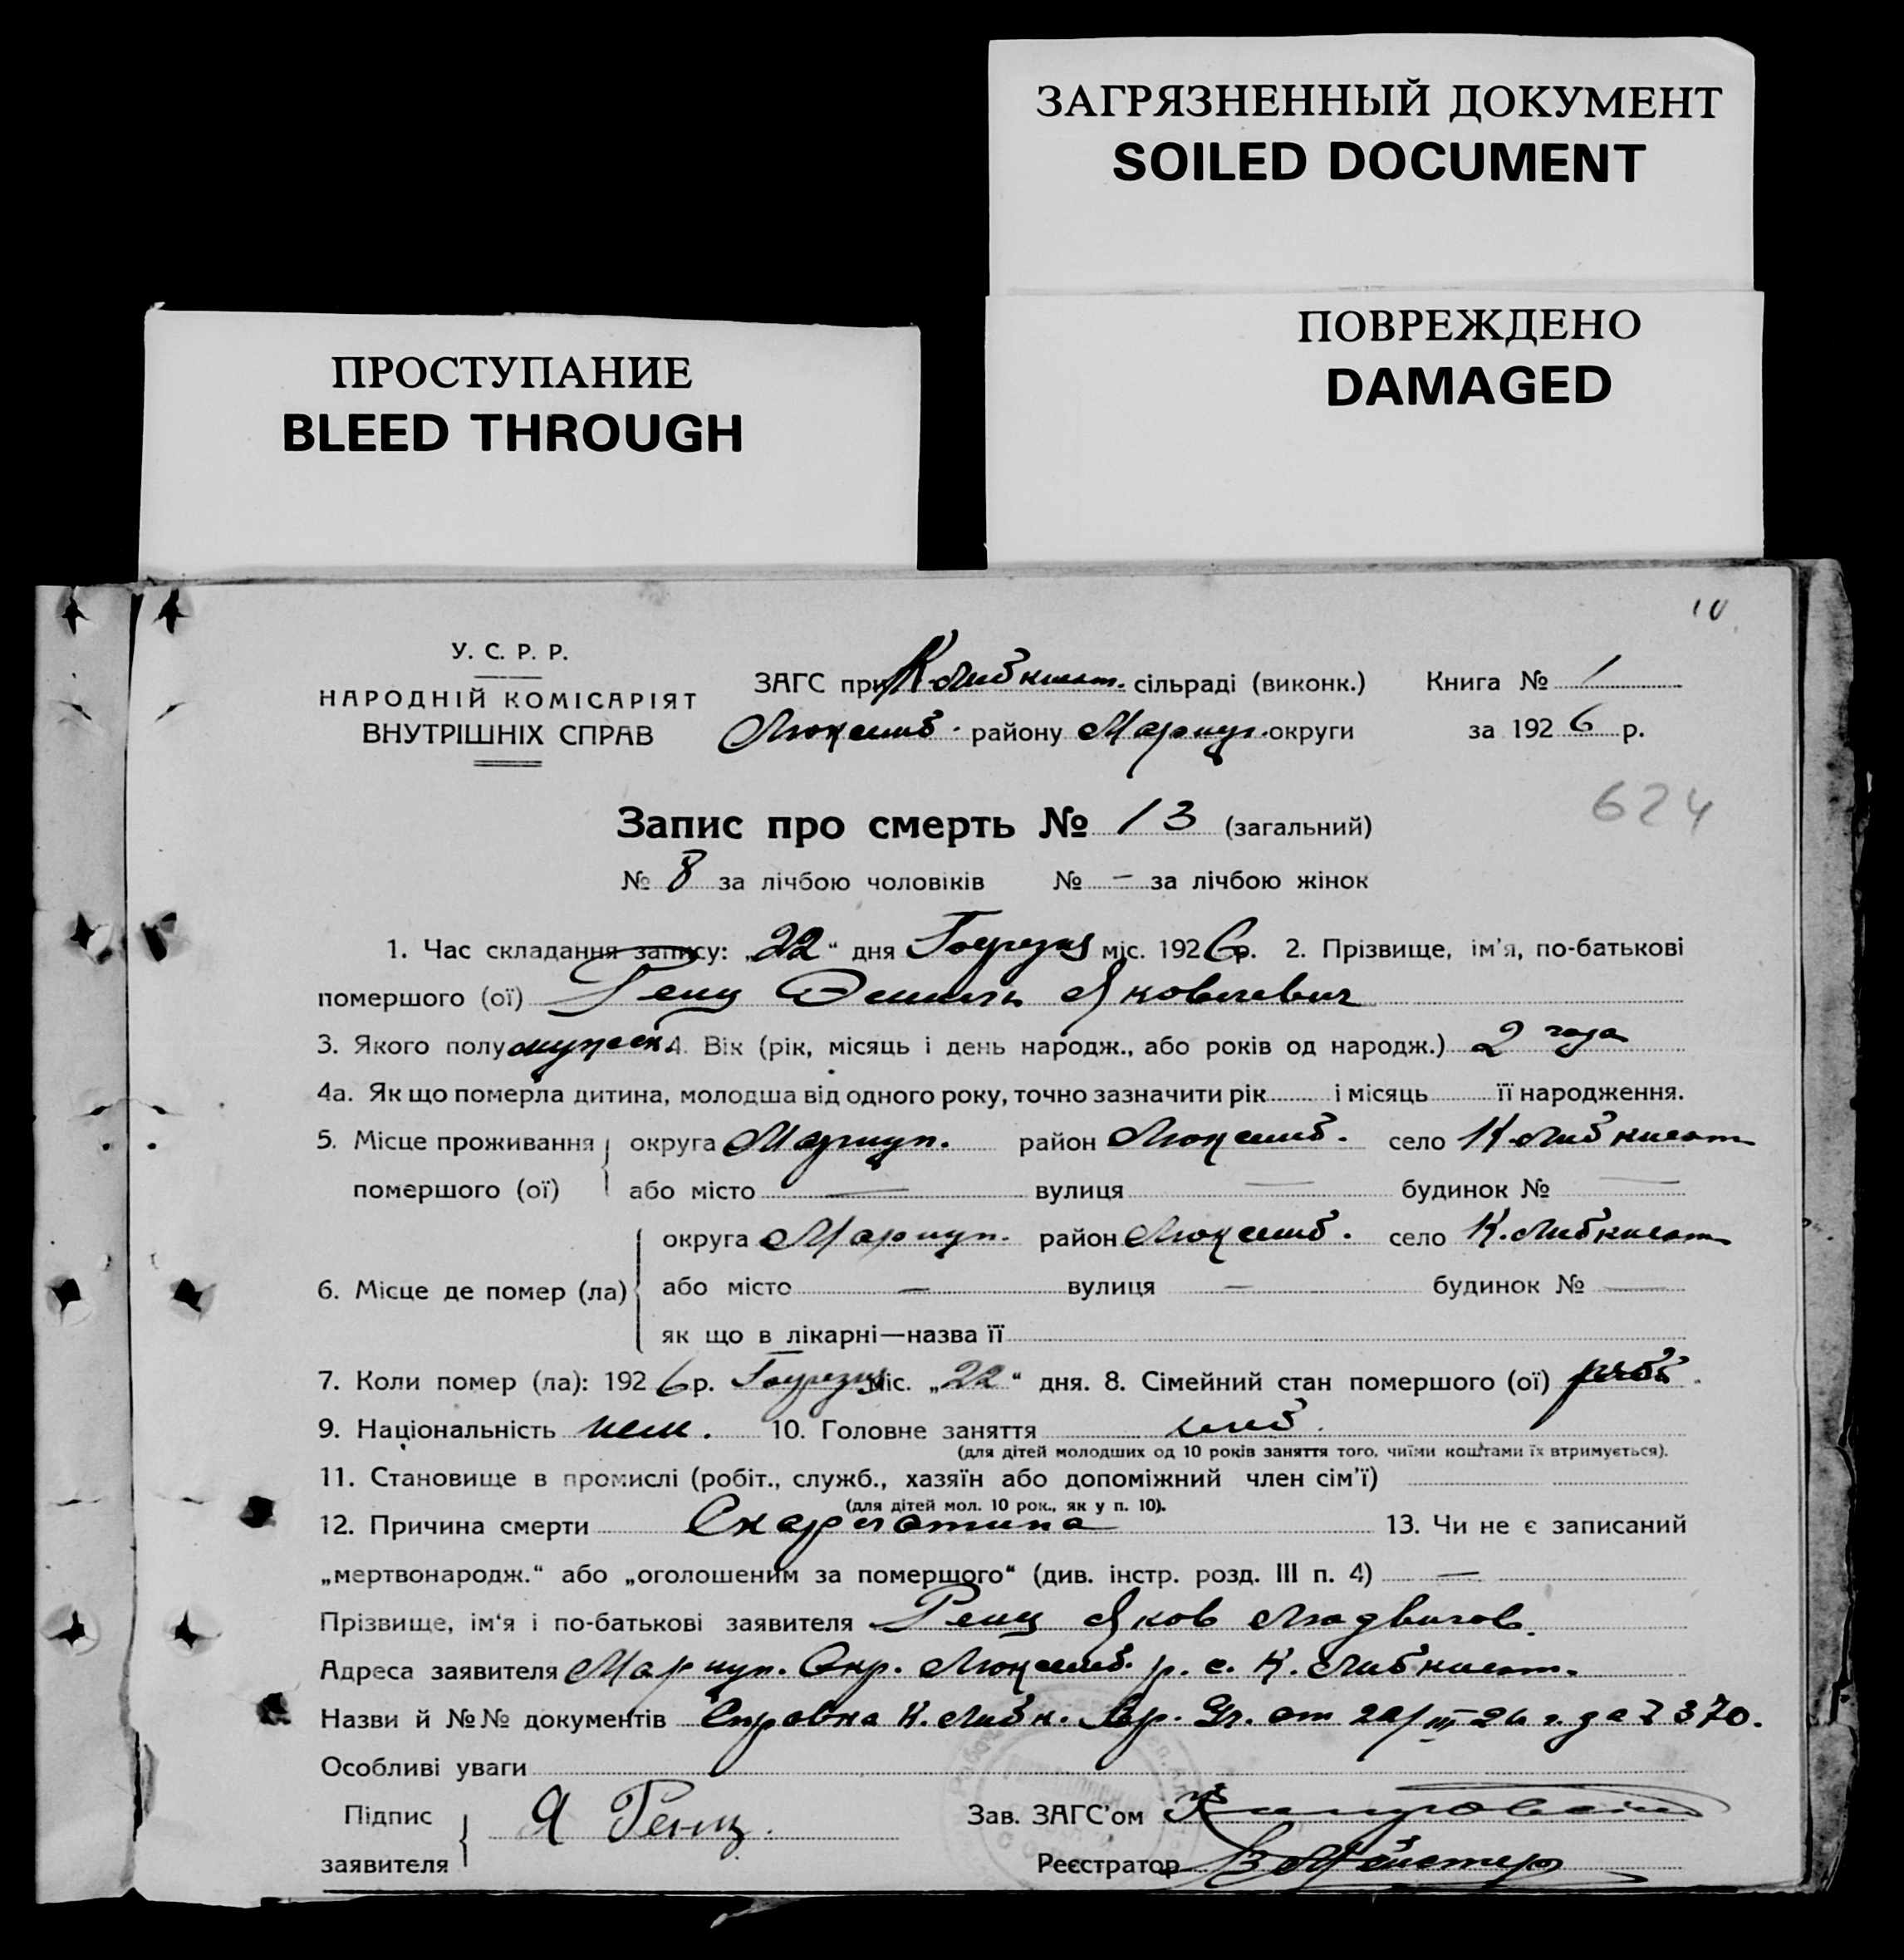 ЗАГРЯЗНЕННЫЙ ДОКУМЕНТ
SOILED DOCUMENT
ПОВРЕЖДЕНО
DAMAGED
ПРОСТУПАНИЕ
BLEED THROUGH
10
У. С. Р. Р.
НАРОДНІЙ КОМІСАРІЯТ
ВНУТРІШНІХ СПРАВ
ЗАГС при К. Либкнехт. сільраді (виконк.)
Люксемб. району Мариуп. округи
Книга № 1
за 1926 р.
624
Запис про смерть № 13 (загальний)
№ 8 за лічбою чоловіків № — за лічбою жінок
1. Час складання запису: „22“ дня міс. 1926 р. 2. Прізвище, ім’я, по-батькові
помершого (ої) Ренц Яковлевич
3. Якого полу мужеск. 4. Вік (рік, місяць і день народж., або років од народж.) 2 года
4а. Як що померла дитина, молодша від одного року, точно зазначити рік і місяць її народження.
5. Місце проживання округа Мариуп. район Люксемб. село К. Либкнехт
помершого (ої) або місто — вулиця — будинок № —
округа Мариуп. район Люксемб. село К. Либкнехт
6. Місце де помер (ла) або місто — вулиця — будинок № —
як що в лікарні—назва її
7. Коли помер (ла): 1926 р. міс. „22“ дня. 8. Сімейний стан помершого (ої)
9. Національність нем. 10. Головне заняття хлеб.
(для дітей молодших од 10 років заняття того, чиїми коштами їх втримується).
11. Становище в промислі (робіт., служб., хазяїн або допоміжний член сім’ї)
(для дітей мол. 10 рок., як у п. 10).
12. Причина смерти Скарлатина 13. Чи не є записаний
„мертвонародж.“ або „оголошеним за помершого“ (див. інстр. розд. III п. 4) —
Прізвище, ім‘я і по-батькові заявителя Ренц Яков Людвигов.
Адреса заявителя Мариуп. Окр. Люксемб. р. с. К. Либкнехт.
Назви й №№ документів Справка К. Либк. от 370.
Особливі уваги
Підпис
заявителя
Я Ренц.
Зав. ЗАГС’ом
Реєстратор